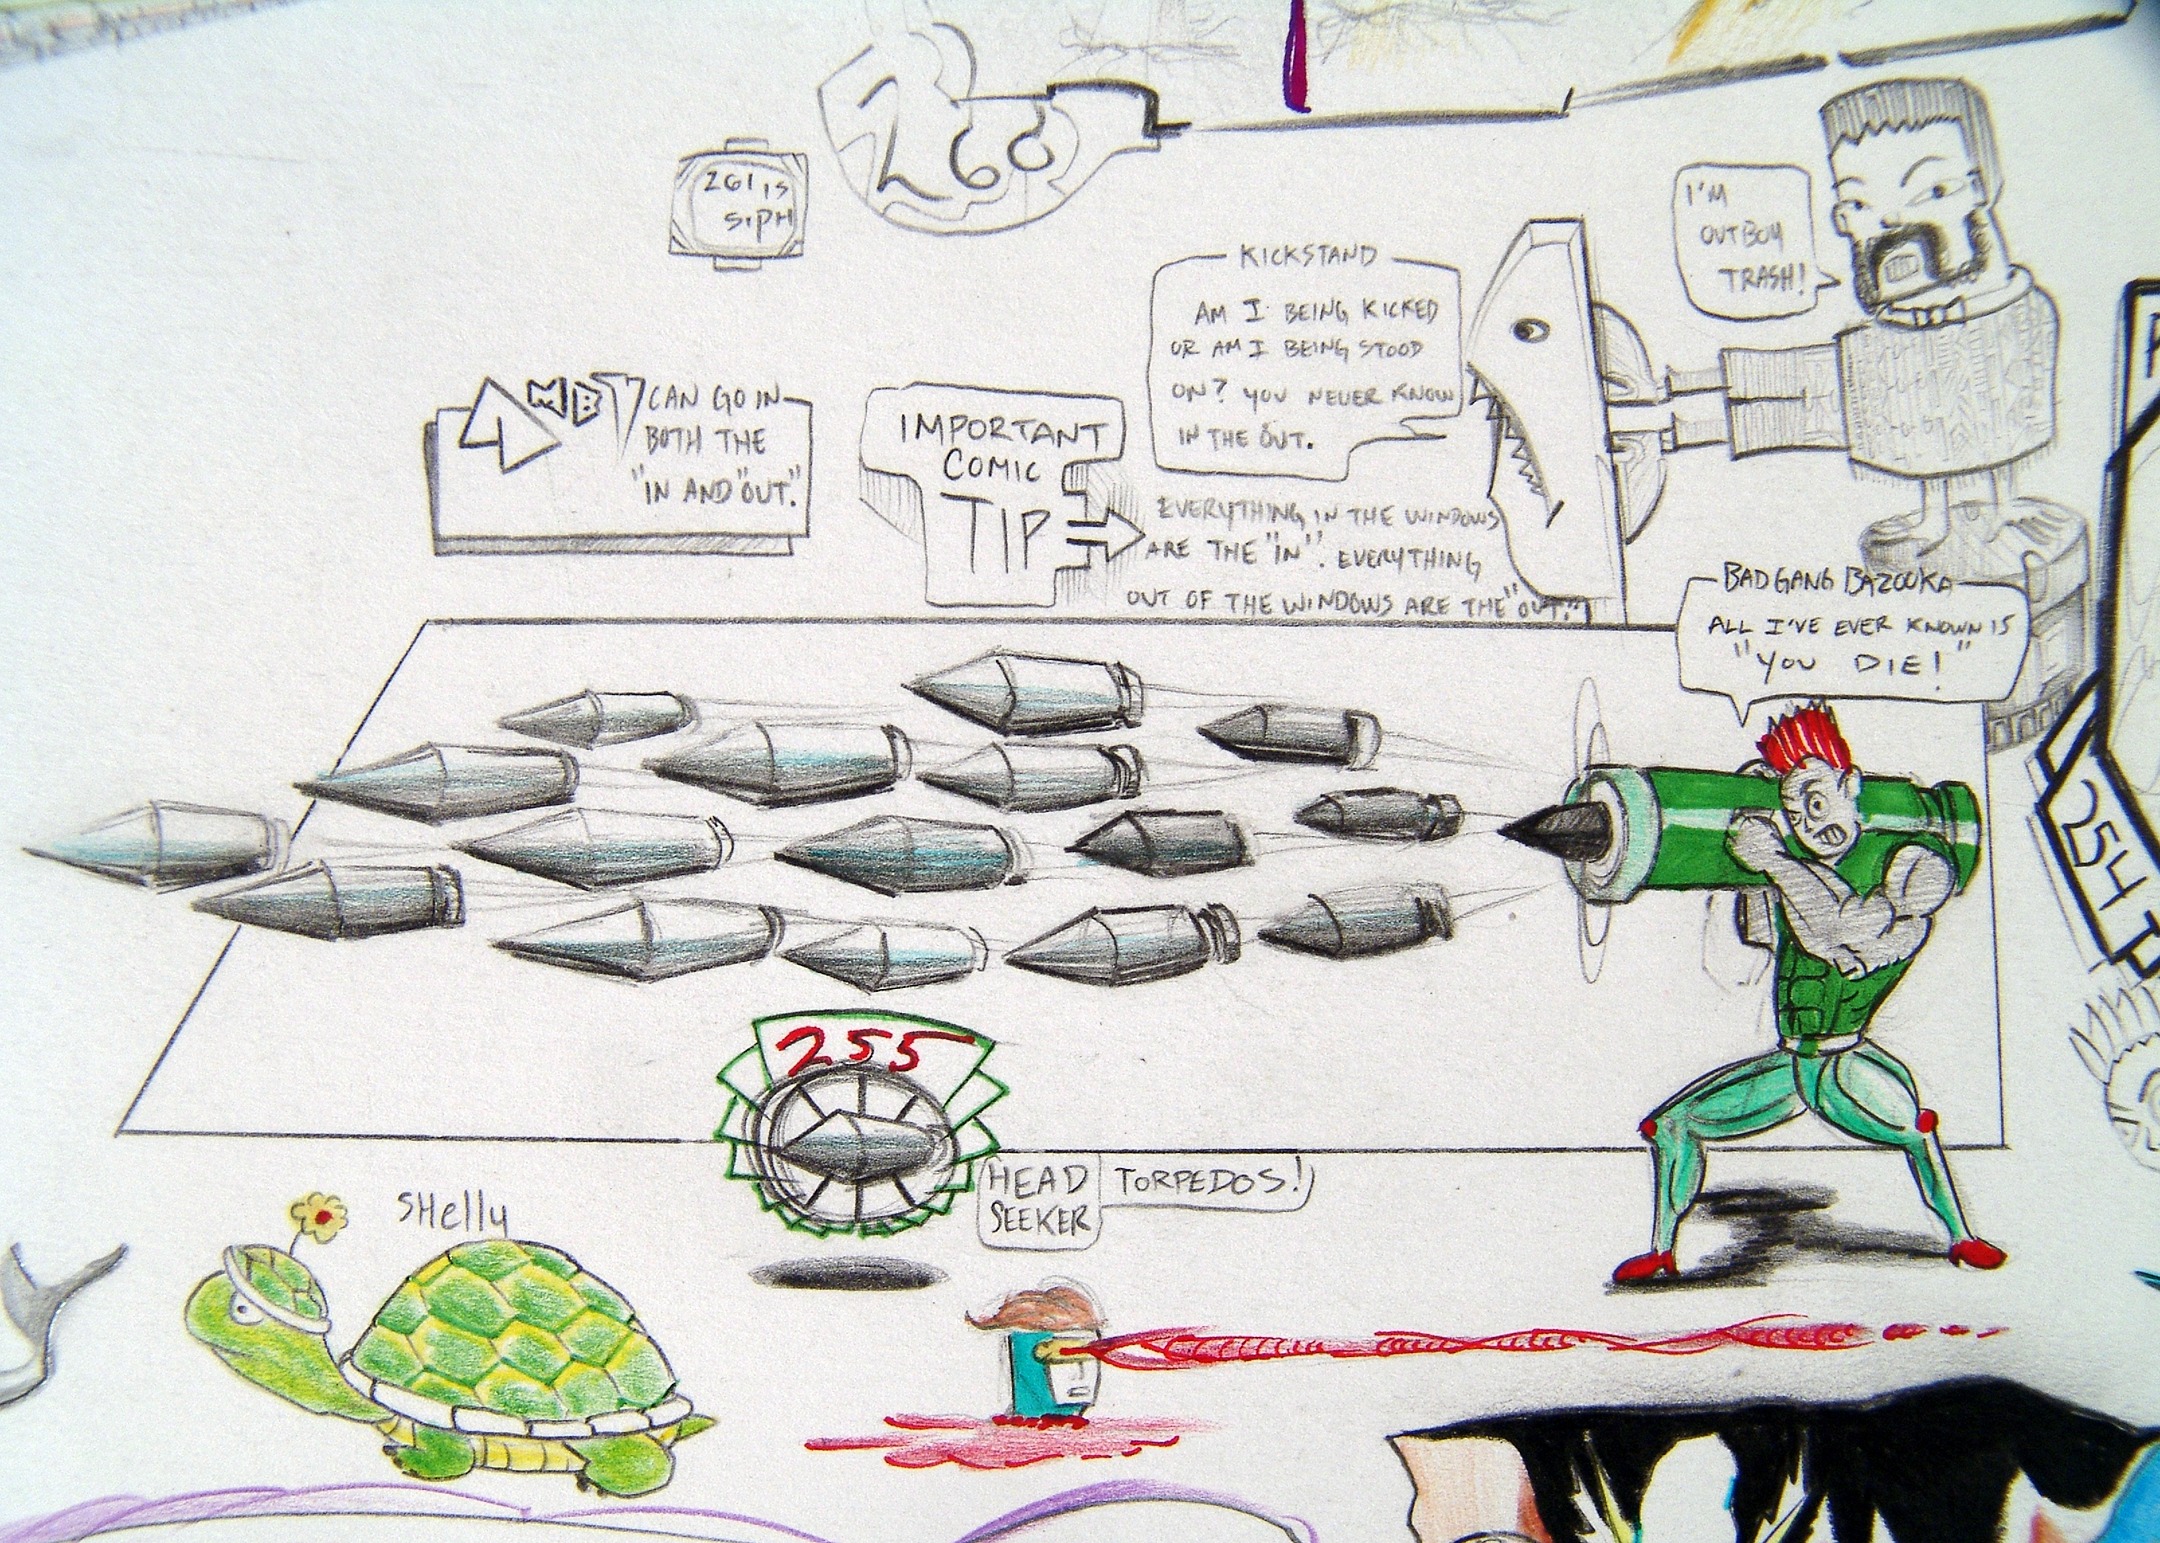 260
261 is
S.PH
I'M
OUTBOY
TRASH!
KICKSTAND
AM I BEING KICKED
OR AM I BEING STOOD
ON? YOU NEVER KNOW
IN THE OUT.
CAN GO IN
BOTH THE
"IN AND "OUT."
IMPORTANT
COMIC
TIP
EVERYTHING IN THE WINDOWS
ARE THE "IN". EVERYTHING
OUT OF THE WINDOWS ARE THE "OUT."
BADGANG BAZOOKA
ALL I'VE EVER KNOWN IS
"YOU DIE!"
254
255
HEAD
SEEKER
TORPEDOS!
SHelly